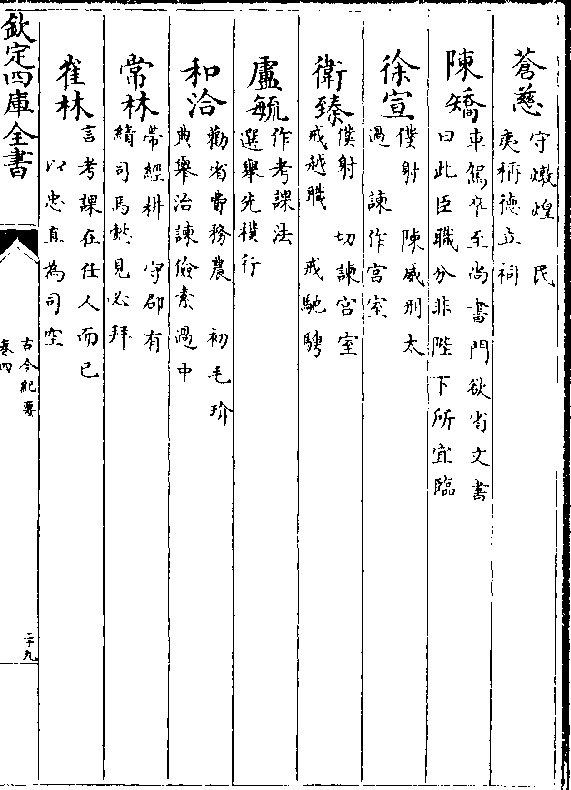 蒼慈
守燉煌　民
夷稱德立祠
陳矯
車駕卒至尚書門欲省文書
曰此臣職分非陛下所宜臨
徐宣
僕射　陳威刑太
過　諫作宫室
衛臻
僕射　切諫宫室
戒越職　戒馳騁
盧毓
作考課法
選舉先樸行
和洽
勸省費務農　初毛玠
典舉洽諫儉素過中
常林
帶經耕　守郡有
績司馬懿見必拜
崔林
言考課在任人而已
以忠直為司空
欽定四庫全書
古今紀要
卷四
二十九